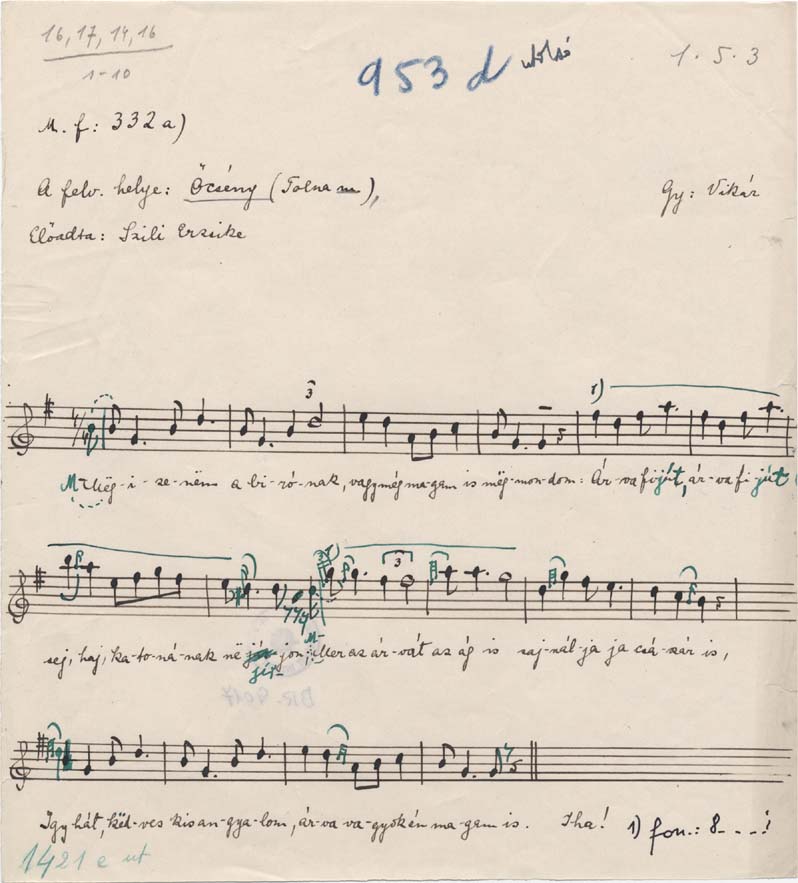 16, 17, 14, 16
1-10
953 d utolsó
1.5.3
M. f: 332 a)
A felv. helye: Őcsény (Tolna m),
Gy: Vikár
Előadta: Szili Erzsike
3
1)
M- Mëg-i-ze-nëm a bi-ró-nak, vagy még ma-gam is mëg-mon-dom: Ár-va fijút, ár-va fi-jút
3
sej, haj, ka-to-ná-nak në jon; Mer az ár-vát az ág is saj-nál-ja ja csá-szár is,
M-
Így hát, këd-ves kis an-gya-lom, ár-va va-gyok én ma-gam is. I-ha! 1) fon.: 8- - - !
1421 e ut